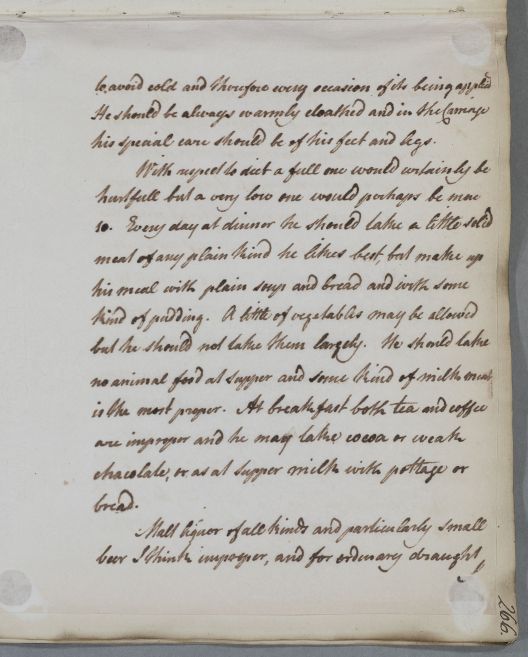 to avoid cold and therefore every occasion of its being applied
He should be always warmly cloathed and in the Carriage
his special care should be of his feet and legs.
With respect to diet a full one would certainly be
hurtfull but a very low one would perhaps be more
so. Every day at dinner he should take a little solid
meat of any plain kind he likes best, but make up
his meal with plain soup and bread and with some
kind of pudding. A little of vegetables may be allowed
but he should not take them largely. He should take
no animal food at supper and some kind of milk meat
is the most proper. At breakfast both tea and coffee
are improper and he may take cocoa or weak
chacolate, or as at supper milk with pottage or
bread.
Malt liquor of all kinds and particularly small
beer I think improper, and for ordinary draught
266.